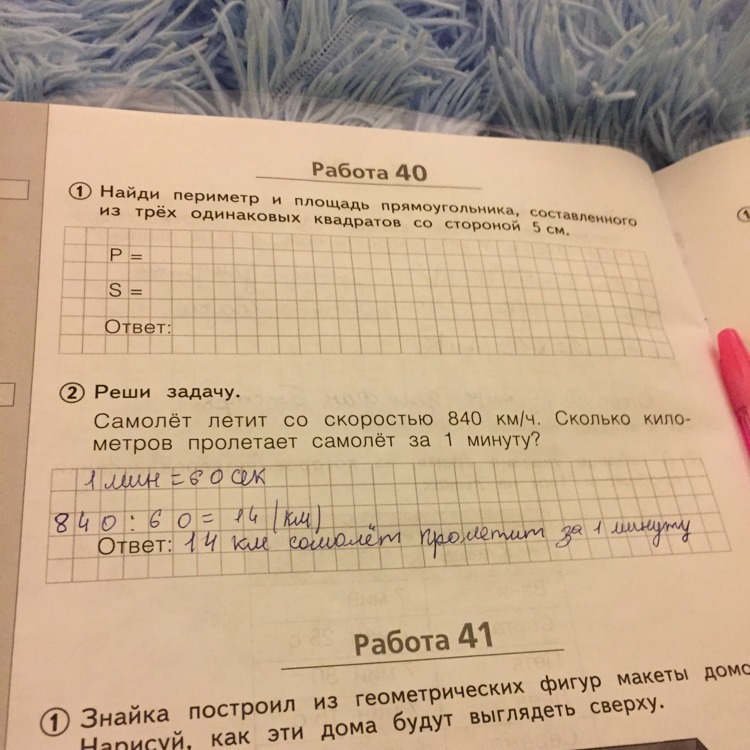 Работа 40
① Найди периметр и площадь прямоугольника, составленного
из трёх одинаковых квадратов со стороной 5 см.
P =
S =
Ответ:
② Реши задачу.
Самолёт летит со скоростью 840 км/ч. Сколько кило-
метров пролетает самолёт за 1 минуту?
1 мин = 60 сек
840 : 60 = 14 (км)
Ответ: 14 км сомолёт пролетит за 1 минуту
Работа 41
① Знайка построил из геометрических фигур макеты домо
Нарисуй, как эти дома будут выглядеть сверху.